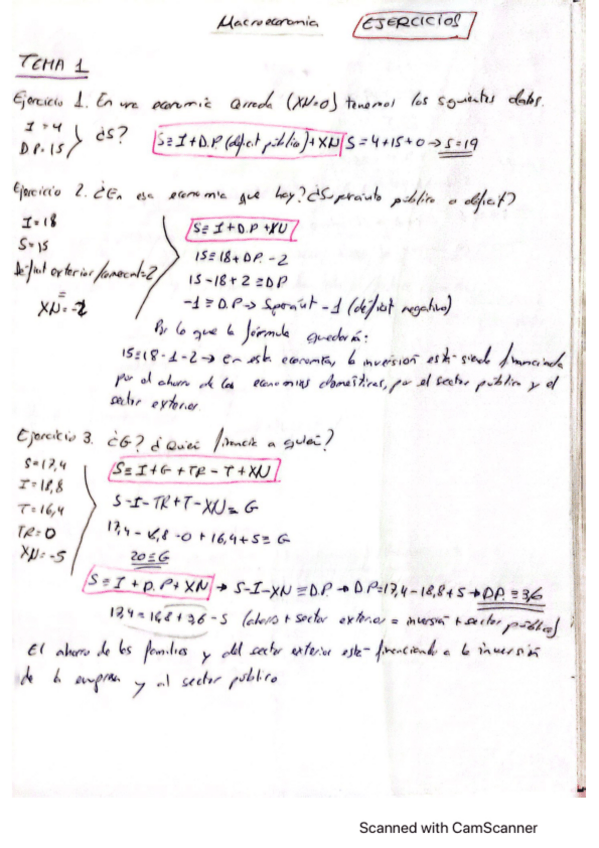 Macroeconomía EJERCICIOS
TEMA 1
Ejercicio 1. En una economía cerrada (XN=0) tenemos los siguientes datos.
I=4
D.P.=15
¿S?
S≡I+D.P. (déficit público)+XN S=4+15+0→S=19
Ejercicio 2. ¿En esa economía que hay? ¿Superávit público o déficit?
I=18
S=15
Déficit exterior/comercial=2
=
XN=-2
S≡I+D.P+XN
15≡18+DP-2
15-18+2≡DP
-1≡D.P→ Superávit -1 (déficit negativo)
Por lo que la fórmula quedaría:
15=18-1-2→ en esta economía, la inversión está siendo financiada
por el ahorro de las economías domésticas, por el sector público y el
sector exterior.
Ejercicio 3. ¿G? ¿Quien financia a quien?
S=17,4
I=18,8
T=16,4
TR=0
XN=-5
S≡I+G+TR-T+XN
S-I-TR+T-XN≡G
17,4-18,8-0+16,4+5≡G
20≡G
S≡I+D.P+XN → S-I-XN≡D.P → DP=17,4-18,8+5→D.P.≡3,6
17,4=18,8+3,6-5 (ahorro + sector exterior = inversión + sector público)
El ahorro de las familias y del sector exterior está financiando a la inversión
de la empresa y al sector público
Scanned with CamScanner